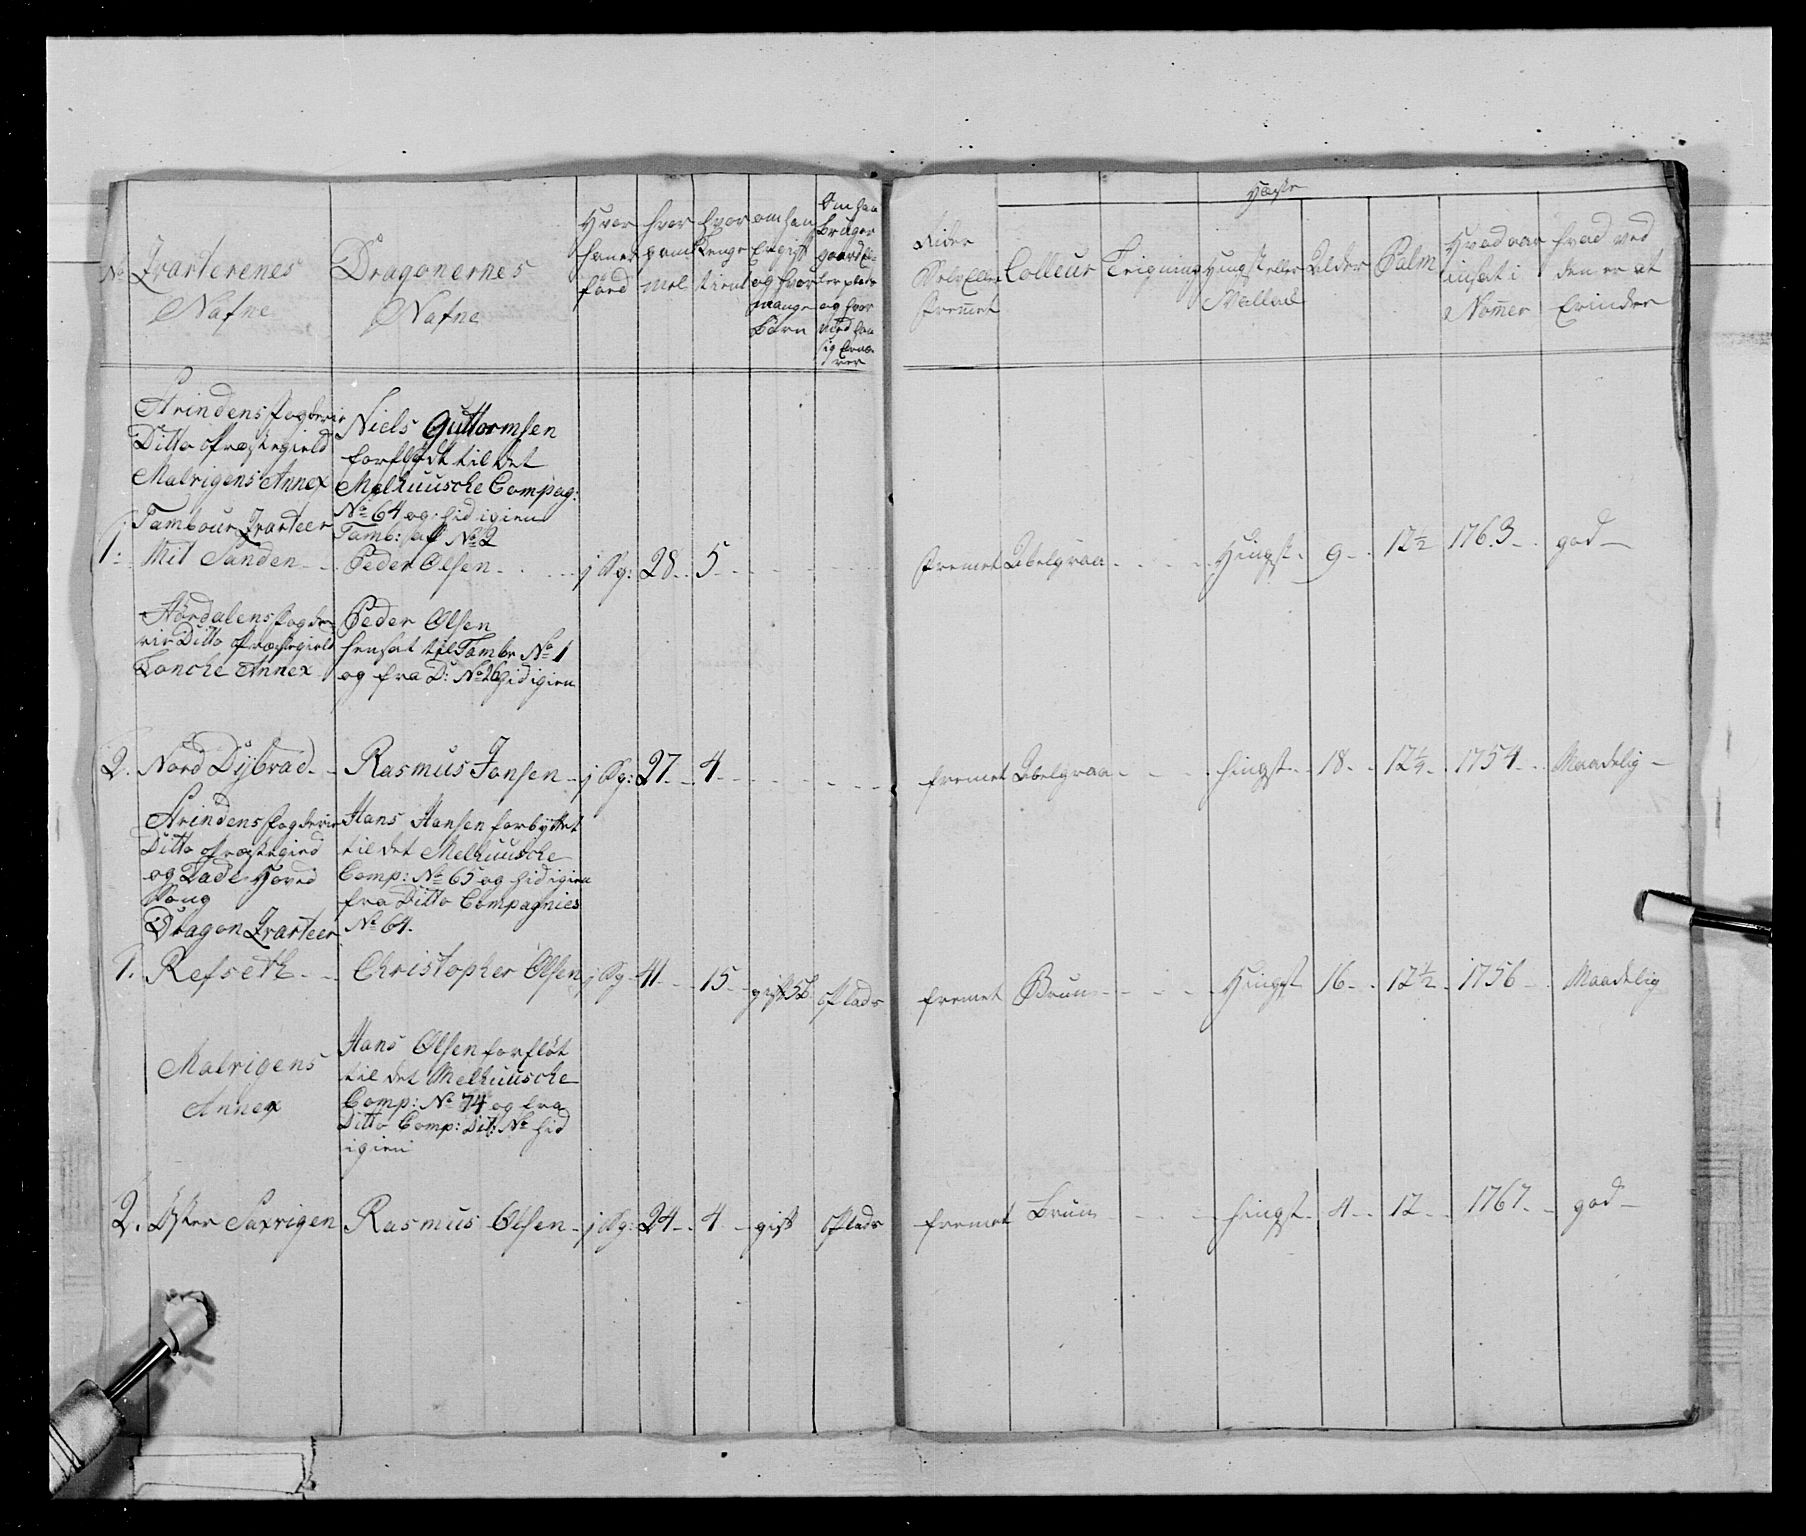 No
Qvarterenes
Nafne
Dragonernes
Nafne
Hvor
han er
föed
hvor
gam̄el
hvor
Lenge
tient
om han
Er gift
og hvor
mange
Börn
Om han
Bruger
gaard El-
ler plads
og hvor
med han
sig Ernæ-
rer
Heste
Rider
Selv Eller
frem̄et
Colleur
Teigning
Hingst eller
Vallak
Alder
Palm
Hvad aar
insat i
Nom̄er
hvad ved
den er at
Erindre
Strindens Fogderie
Ditto Præstegield
Malvigens Annex
Tambour Qvarteer
Niels Guttormsen
forflödt til det
Melhuusche Compag:
No 64 og hid igien
Tamb: No 2
1: Mit Sanden - - Peder Olsen - - i Sg: 28 - 5 - - - fremet Abelgraa - - - Hingst - 9 - 12½ 1763 - god -
Fogde-
rie Ditto Præstegield
Annex
Peder Olsen
hensat til Tambr No 1
og fra D: No 26 hid igien
2. Nord Dijbvad - - Rasmus Jonsen - i Sg: 27 - 4 - - - fremet Abelgraa - - - hingst - 18 - 12¼ - 1754 - Maadelig -
Strindens Fogderie
Ditto Præstegield
og Lade Hoved
Song
Dragon Qvarteer
Hans Hansen forbyttet
til det Melhuusche
Comp: No 65 og hid igien
fra Ditto Compagnies
No 64.
1. Refseth - - Christopher Olsen i Sg - 41 - 15 - gift 5 b. Plads fremet Brun - - - Hingst 16 - 12½ - 1756 - Maadelig
Malvigens
Annex
Hans Olsen forflöt
til det Melhuusche
Comp: No 74 og fra
Ditto Comp: Dit: No hid
igien
2. Öster Saxvigen Rasmus Olsen - i Sg: 24 - 4 - gift Plads fremet Brun - - - hingst - 4 - 12 - 1767 - god -